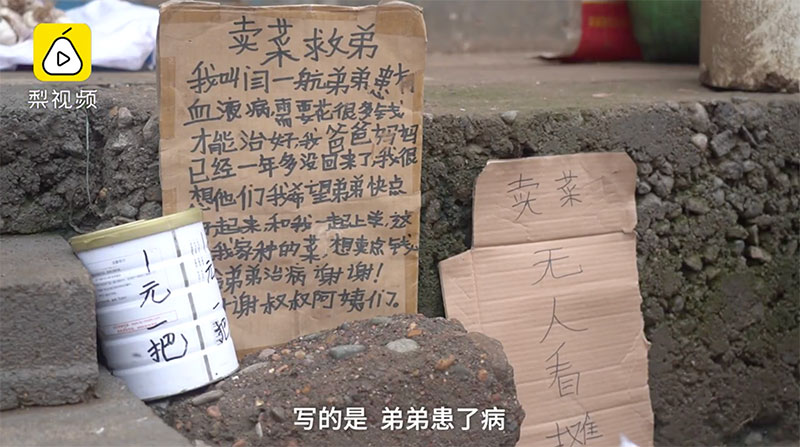 梨视频
卖菜救弟
我叫闫一航弟弟患有
血液病需要花很多钱
才能治好,我爸爸妈妈
已经一年多没回来了,我很
想他们我希望弟弟快点
起来,和我一起上学,这
我家种的菜,想卖点钱
弟弟治病谢谢!
谢叔叔阿姨们。
1元一把
元一把
卖菜
无人看摊
写的是 弟弟患了病